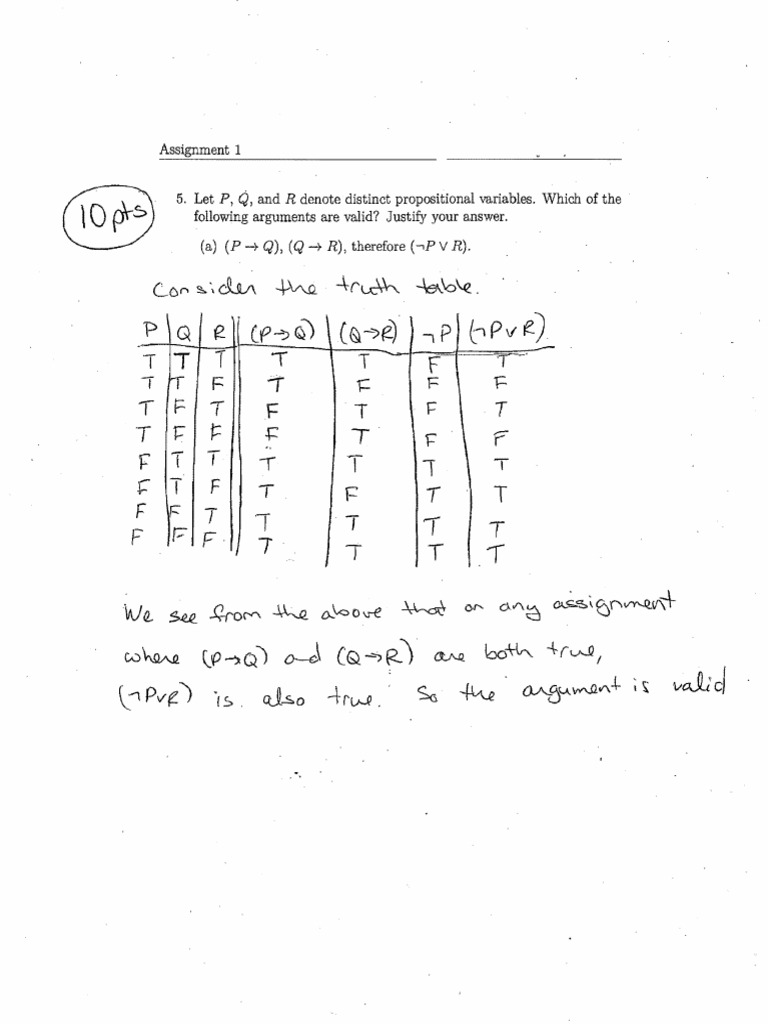 Assignment 1
10 pts
5. Let P, Q, and R denote distinct propositional variables. Which of the
following arguments are valid? Justify your answer.
(a) (P → Q), (Q → R), therefore (¬P ∨ R).
Consider the truth table.
P Q R (P→Q) (Q→R) ¬P (¬P∨R)
T T T T T F T
T T F T F F F
T F T F T F T
T F F F T F F
F T T T T T T
F T F T F T T
F F T T T T T
F F F T T T T
We see from the above that on any assignment
where (P→Q) and (Q→R) are both true,
(¬P∨R) is also true. So the argument is valid